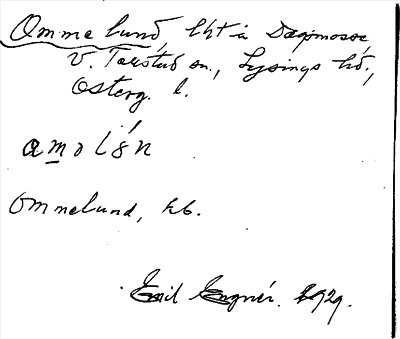 Ommelund, lht å Dagsmosse,
V. Tollstad sn., Lysings hd.,
Österg. l.
amolån
Ommelund, kb.
Emil Engnér. 1929.